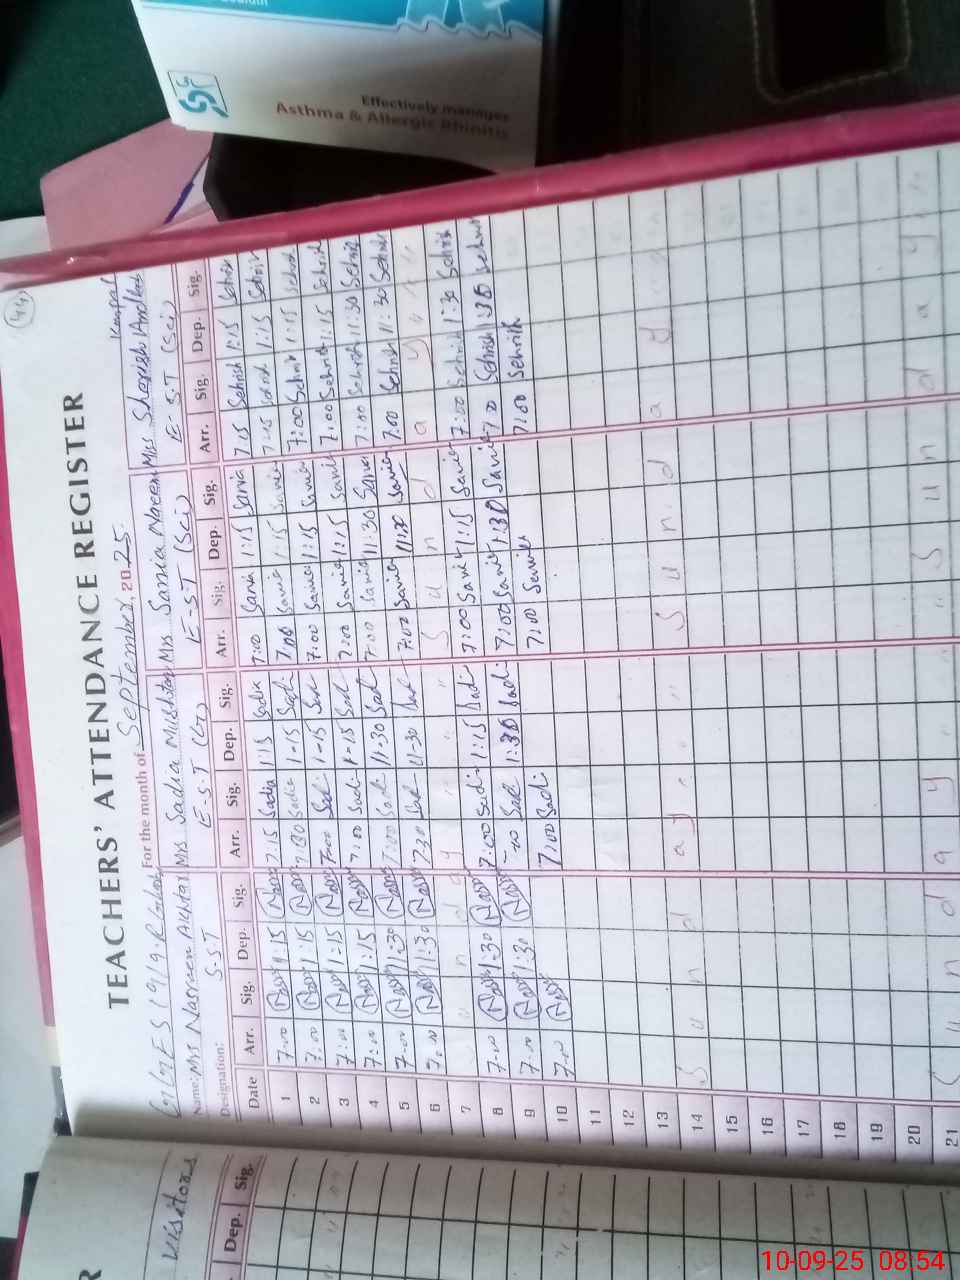 Effectively manages
Asthma & Allergic Rhinitis
44
TEACHERS' ATTENDANCE REGISTER
For the month of September, 2025
Name: Mrs Nasreen Akhtar Mrs Sadia Mushtaq Mrs Sania Naeem Mrs Sherish Andleeb
Designation: S.S.T E-S-T E-S-T (Sci) E-S-T (Sci)
Date Arr. Sig. Dep. Sig. Arr. Sig. Dep. Sig. Arr. Sig. Dep. Sig. Arr. Sig. Dep. Sig.
1 7:00 1:15 7:15 Sadia 1:15 Sadia 7:00 Sania 1:15 Sania 7:15 Sehrish 1:15 Sehrish
2 7:00 1:15 7:30 Sadia 1-15 Sadi 7:00 Sania 1:15 Sania 7:15 Sehrish 1:15 Sehrish
3 7:00 1:15 7:00 Sadi 1-15 Sadi 7:00 Sania 1:15 Sania 7:00 Sehrish 1:15 Sehrish
4 7:00 1:15 7:00 Sadi 1-15 Sadi 7:00 Sania 1:15 Sania 7:00 Sehrish 1:15 Sehrish
5 7:00 11:30 7:00 Sadi 11-30 Sadi 7:00 Sania 11:30 Sania 7:00 Sehrish 11:30 Sehrish
6 7:00 1:30 7:30 Sadi 11-30 Sadi 7:00 Sania 11:30 Sania 7:00 Sehrish 11:30 Sehrish
7 S u n d a y S u n d a y
8 7:00 1:30 7:00 Sadi 1:15 Sadi 7:00 Sania 1:15 Sania 7:00 Sehrish 1:30 Sehrish
9 7:00 1:30 7:00 Sadi 1:30 Sadi 7:00 Sania 1:30 Sania 7:00 Sehrish 1:30 Sehrish
10 7:00 7:00 Sadi 7:00 Sania 7:00 Sehrish
11
12
13
14 S u n d a y S u n d a y
15
16
17
18
19
20
21 S u n d a y S u n d a y
Visitors
Dep. Sig.
10-09-25 08:54